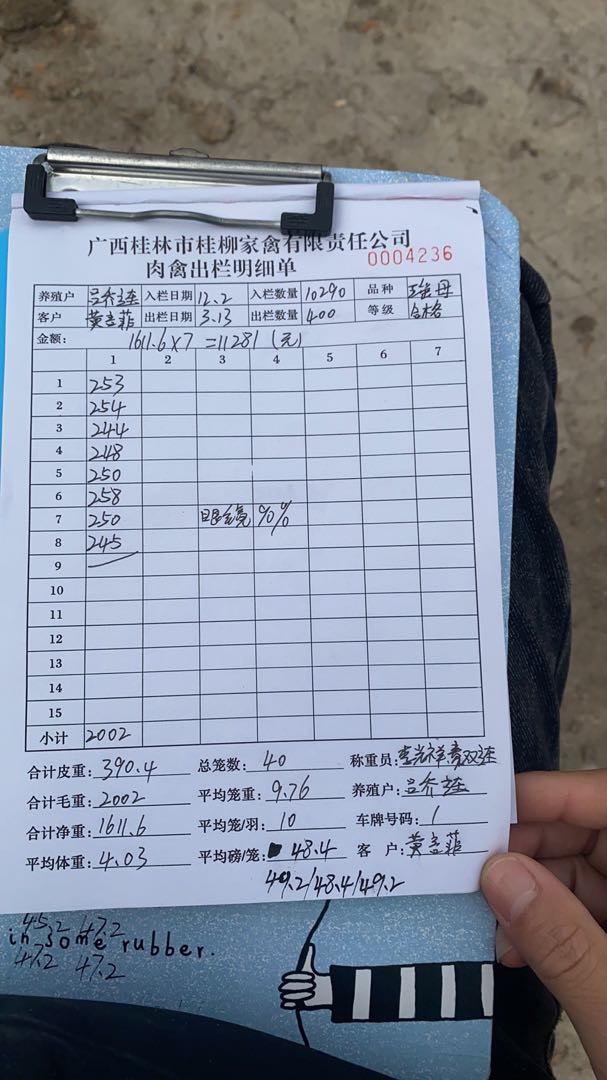 广西桂林市桂柳家禽有限责任公司
肉禽出栏明细单 0004236
养殖户 入栏日期 12.2 入栏数量 10290 品种
客户 出栏日期 3.13 出栏数量 400 等级 合格
金额: 1611.6×7=11281(元)
1 2 3 4 5 6 7
1 253
2 254
3 244
4 248
5 250
6 258
7 250 90%
8 245
9
10
11
12
13
14
15
小计 2002
合计皮重: 390.4 总笼数: 40 称重员:
合计毛重: 2002 平均笼重: 9.76 养殖户:
合计净重: 1611.6 平均笼/羽: 10 车牌号码: 1
平均体重: 4.03 平均磅/笼: 48.4 客 户:
49.2/48.4/49.2
45.2 47.2
in some rubber.
47.2 47.2